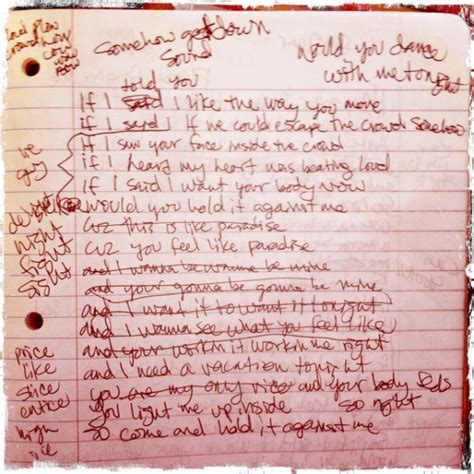 Somehow get down
sound
would you dance
with me tonight
loud plow
crowd how
cow
now
told you
If I said I like the way you move
if I said I If we could escape the crowd somehow
If I saw your face inside the crowd
if I heard my heart was beating loud
If I said I want your body now
would you hold it against me
cuz this is like paradise
cuz you feel like paradise
and I wanna be wanna be mine
and your gonna be gonna be mine
and I want it to want it tonight
and I wanna see what you feel like
and your workin it workin me right
and I need a vacation tonight
you are my only vice and your body feels
You light me up inside so right
so come and hold it against me
night
fight
sight
price
like
slice
entice
high
ice